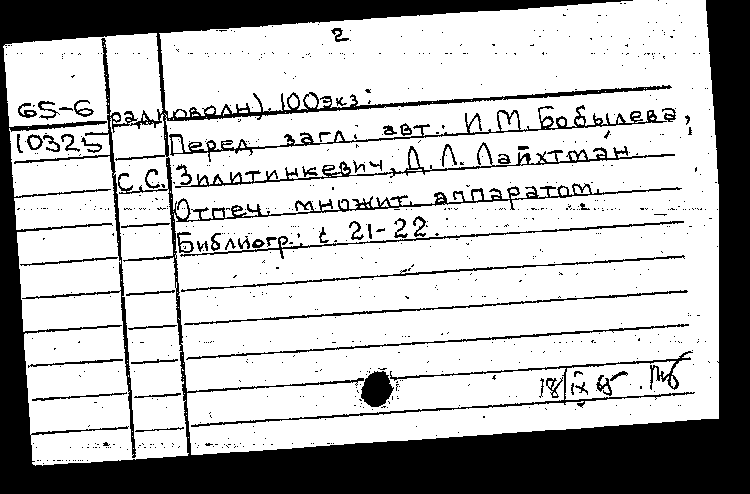 2
65-6 радиоволн). 100экз:
10325 Перед загл. авт.: И.М. Бобылева,
С.С. Зилитинкевич, Д.Л. Лайхтман.
Отпеч. множит. аппаратом.
Библиогр.: с. 21-22.
18/IX 65